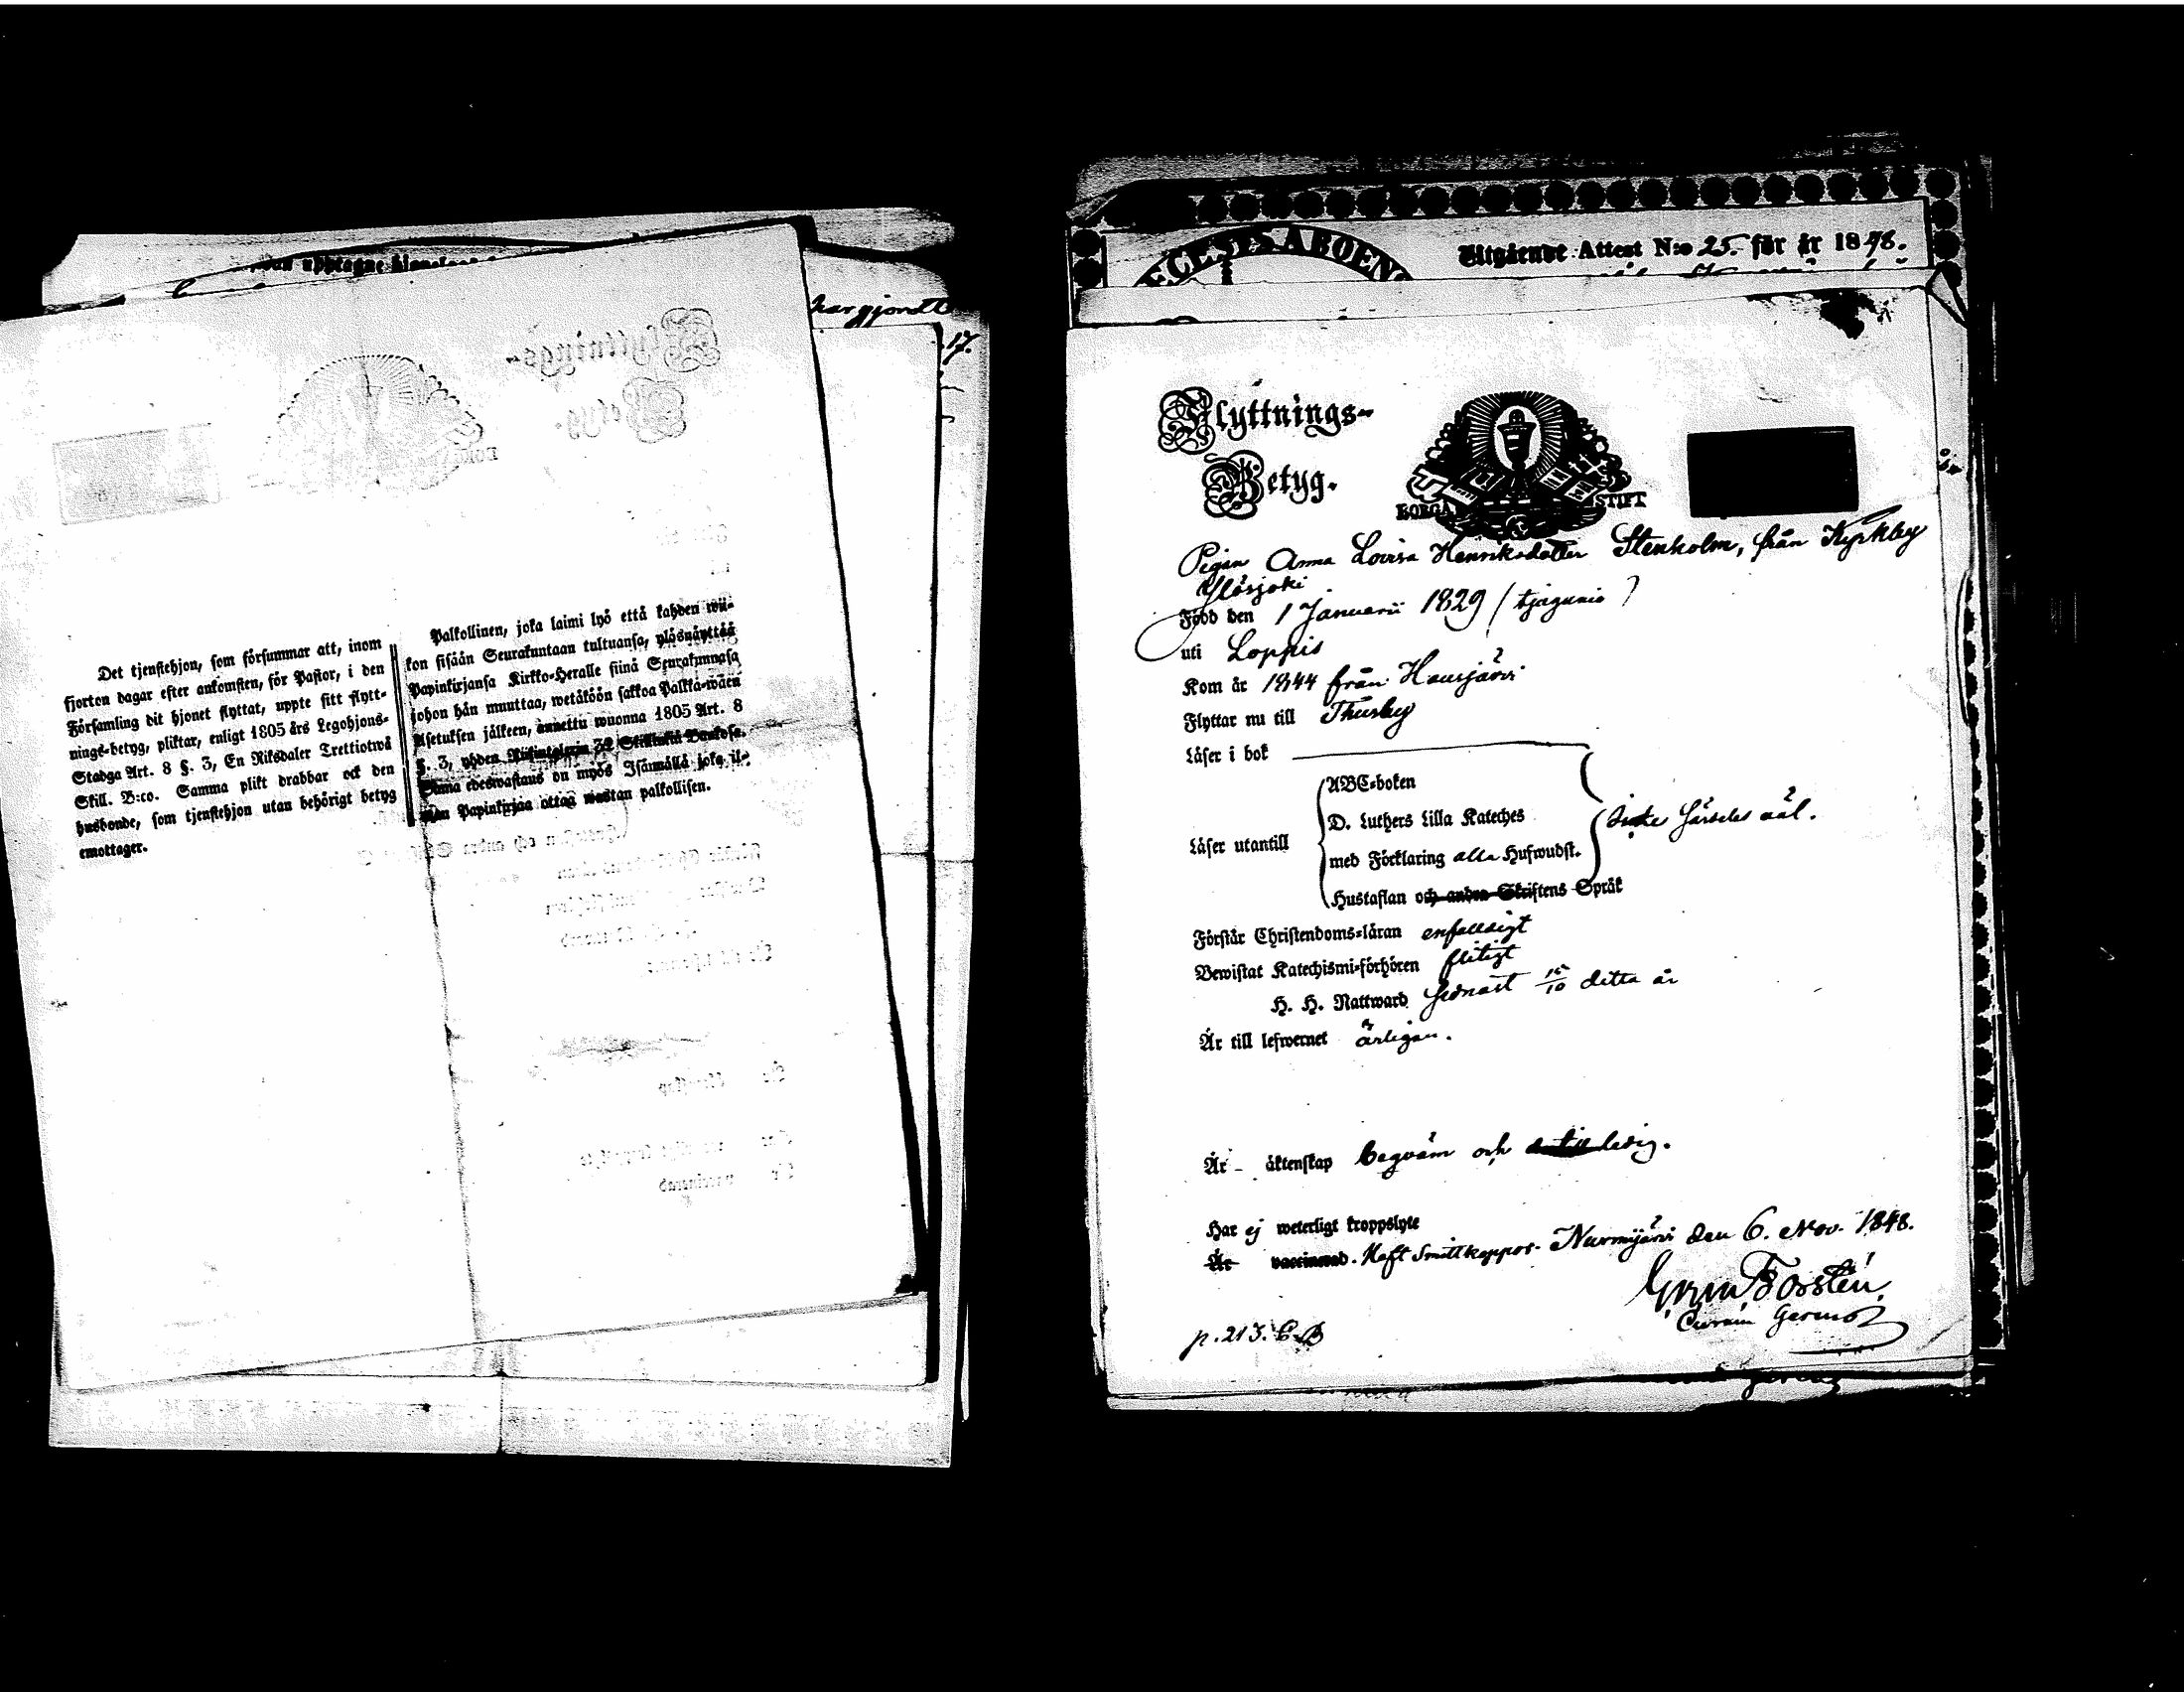 har gjordt
17.
Det tjenstehjon, som försummar att, inom
fjorton dagar efter ankomsten, för Pastor, i den
Församling dit hjonet flyttat, uppte sitt flytt-
nings-betyg, pliktar, enligt 1805 års Legohjons-
Stadga Art. 8 §. 3, En Riksdaler Trettiotwå
Skill. B:co. Samma plikt drabbar ock den
husbonde, som tjenstehjon utan behörigt betyg
emottager.
Palkollinen, joka laimi lyö että kahden wii-
kon sisään Seurakuntaan tultuansa, ylösnäyttää
Papinkirjansa Kirkko-Heralle siinä Seurakunnasa
johon hän muuttaa, wetäköön sakkoa Palkka-wäen
Asetuksen jälkeen, annettu wuonna 1805 Art. 8
§. 3, yhden Riksintalarin 32 Skillinkiä Bankosa.
Sama edeswastaus on myös Isännällä joka il-
man Papinkirjaa ottaa wastan palkollisen.
ECLESIS ABOENS
Utgående Attest N:o 25. för år 1848.
Flyttnings-
Betyg.
BORGÅ STIFT
Pigan Anna Lovisa Henriksdotter Stenholm, från Kyrkby
Född den 1 Januarii 1829 (
uti Loppis
Kom år 1844 från Hausjärvi
Flyttar nu till Thusby
Läser i bok
ABC-boken
D. Luthers Lilla Kateches
Läser utantill
med Förklaring alla Hufwudst.
Hustaflan och andra Skriftens Språk
Förstår Christendoms-läran enfaldigt
Bewistat Katechismi-förhören flitigt
H. H. Nattward sednast 15/10 detta år
Är till lefwernet ärligan.
Är äktenskap beqväm och ledig.
Har ej weterligt kroppslyte
Är vaccinerad. Haft Smittkoppor. Nurmijärvi den 6. Nov. 1848.
p. 213.